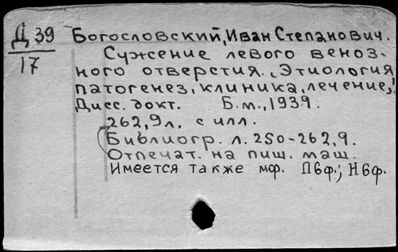 Д 39 Богословский, Иван Степанович.
17
Сужение левого веноз-
ного отверстия. (Этиология,
патогенез, клиника, лечение).
Дисс. докт. Б.м., 1939.
262,9 л. с илл.
Библиогр. л. 250-262, 9.
Отпечат. на пиш. маш.
Имеется также мф. Пвф.; Нвф.